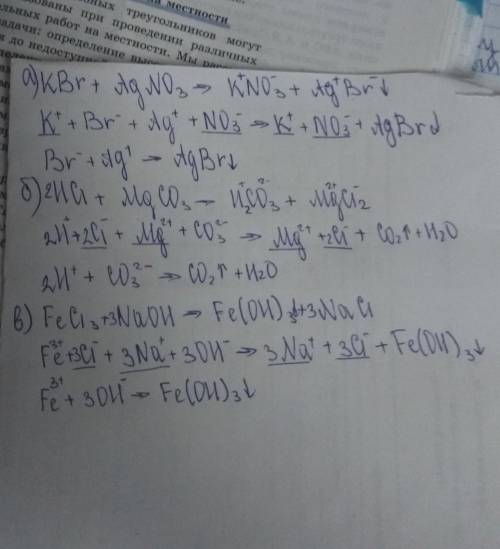 на местности
треугольников могут
зованы при проведении различных
работ на местности. Мы
задачи: определение
до недоступ
а) KBr + AgNO₃ → K⁺NO₃⁻ + Ag⁺Br⁻↓
K⁺ + Br⁻ + Ag⁺ + NO₃⁻ → K⁺ + NO₃⁻ + AgBr↓
Br⁻ + Ag⁺ → AgBr↓
б) 2HCl + MgCO₃ → H₂⁺CO₃²⁻ + Mg²⁺Cl⁻₂
2H⁺ + 2Cl⁻ + Mg²⁺ + CO₃²⁻ → Mg²⁺ + 2Cl⁻ + CO₂↑ + H₂O
2H⁺ + CO₃²⁻ → CO₂↑ + H₂O
в) FeCl₃ + 3NaOH → Fe(OH)₃↓ + 3NaCl
Fe³⁺ + 3Cl⁻ + 3Na⁺ + 3OH⁻ → 3Na⁺ + 3Cl⁻ + Fe(OH)₃↓
Fe³⁺ + 3OH⁻ → Fe(OH)₃↓